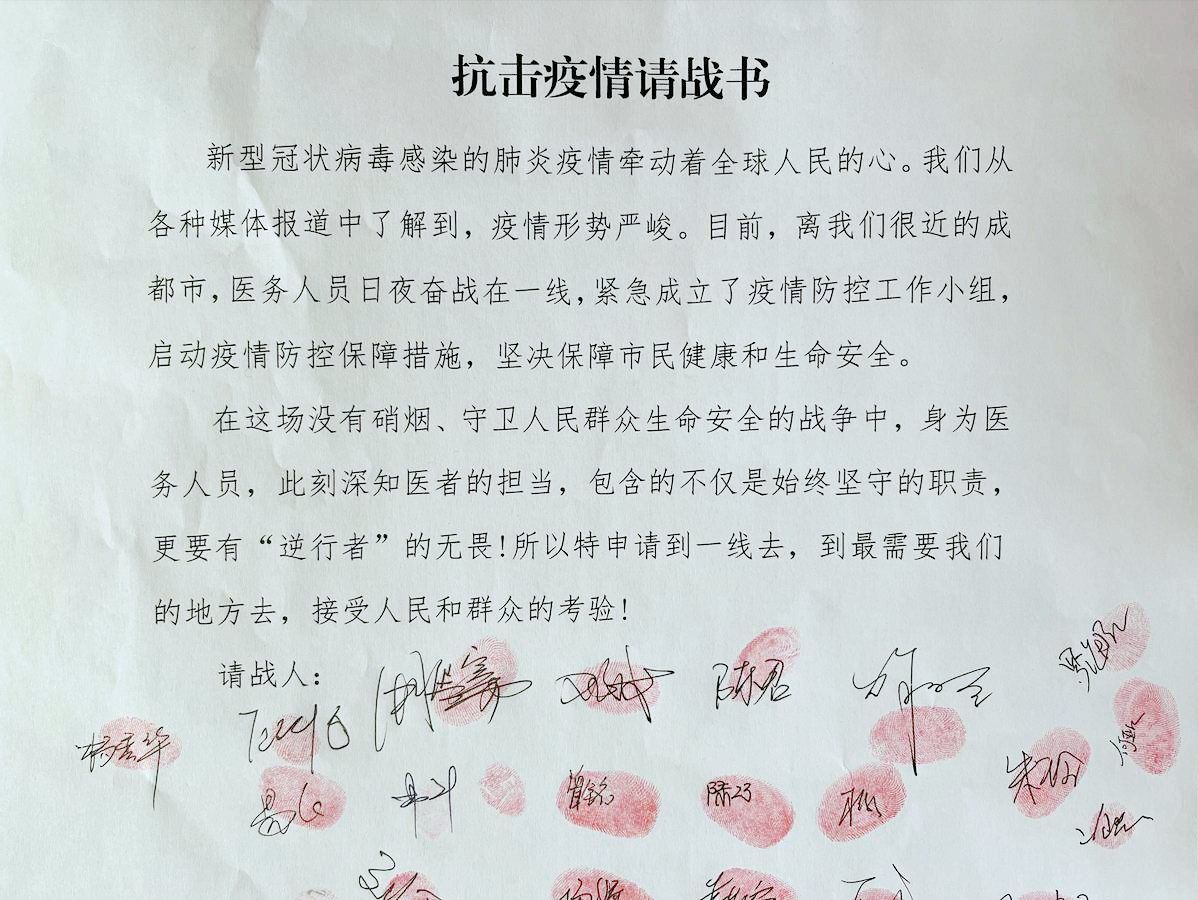 抗击疫情请战书
新型冠状病毒感染的肺炎疫情牵动着全球人民的心。我们从
各种媒体报道中了解到，疫情形势严峻。目前，离我们很近的成
都市，医务人员日夜奋战在一线，紧急成立了疫情防控工作小组，
启动疫情防控保障措施，坚决保障市民健康和生命安全。
在这场没有硝烟、守卫人民群众生命安全的战争中，身为医
务人员，此刻深知医者的担当，包含的不仅是始终坚守的职责，
更要有“逆行者”的无畏！所以特申请到一线去，到最需要我们
的地方去，接受人民和群众的考验！
请战人：